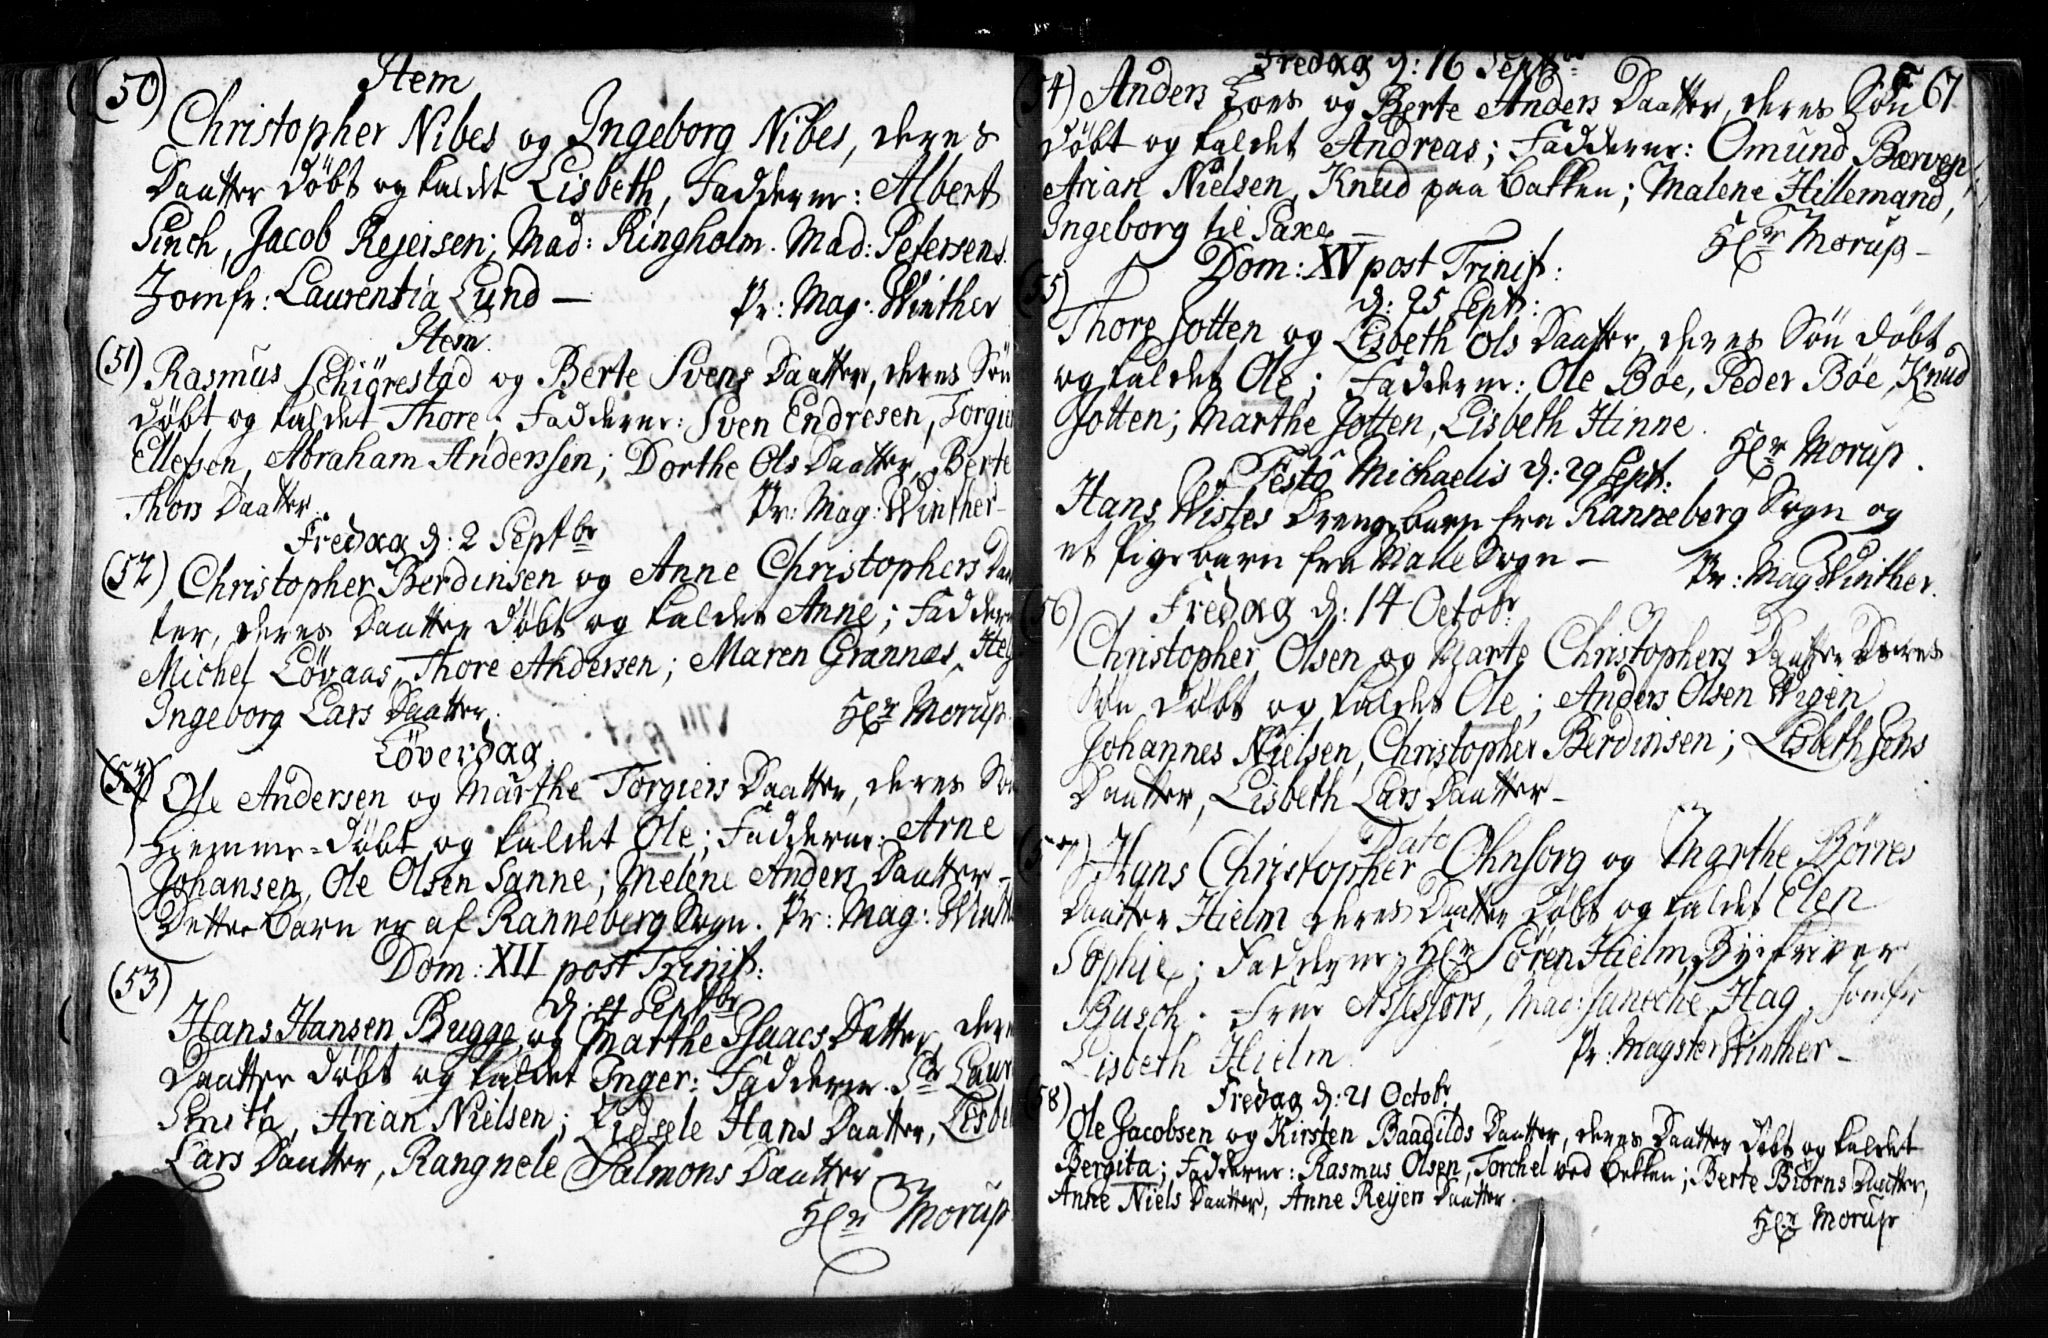 (50) Item
Christopher Nibes og Ingeborg Nibes, deres
Daatter døbt og kaldet Lisbeth, Fadderne: Albert
Sinch, Jacob Rejersen; Mad: Ringholm. Mad: Petersens.
Jomfr: Laurentia Lund — Pr: Mag: Winther
Item.
(51) Rasmus Schiörestad og Berte Svens Daatter, deres Søn
døbt og kaldet Thore; Fadderne: Sven Endresen, Torgier
Ellefsen, Abraham Andersen; Dorthe Ols Daatter, Berte
Thors Daatter. Pr: Mag: Winther
Fredag d: 2 Septbr
(52) Christopher Berdinsen og Anne Christophers Daa
ter, deres Daatter døbt og kaldet Anne; Faddere
Michel Lövaas, Thore Andersen; Maren Grannæs,
Ingeborg Lars Daatter. Hr Morup.
Löverdag
Ole Andersen og Marthe Torgiers Daatter, deres Søn
Hiemme-døbt og kaldet Ole; Fadderne: Arne
Johansen, Ole Olsen Sanne; Melene Anders Daatter -
Dette Barn er af Ranneberg Sogn. Pr: Mag: Winth
Dom: XII post Trinit:
(53) d. 4 Septbr
Hans Hansen Bugge og Marthe Isaacs Datter, deres
Daatter døbt og kaldet Inger: Fadderne. Sr Laur
Smith, Arian Nielsen; Hans Daatter, Lisbeth
Lars Daatter, Rangnele Salmons Daatter
Hr Morup
Fredag d: 16 Septbr
67
54) Anders Foss og Berte Anders Daatter, deres Søn
døbt og kaldet Andreas; Fadderne: Omund Barvep,
Arian Nielsen, Knud paa Bakken; Malene Hillemand,
Ingeborg til Saxe — Hr Morup -
Dom: XV post Trinit:
55) d: 25 Sept:
Thore Jotten og Lisbeth Ols Daatter, deres Søn døbt
og kaldet Ole; Fadderne: Ole Bøe, Peder Bøe, Knud
Jotten; Marthe Jotten, Lisbeth Hinne. Hr Morup.
Festo Michaelis d: 29 Sept:
Hans Wistes Drenge barn fra Ranneberg Sogn og
et Pige barn fra Malle Sogn - Pr: Mag Winther.
56) Fredag d: 14 Octobr
Christopher Olsen og Marte Christophers Daatter deres
Søn døbt og kaldet Ole; Anders Olsen Wigen
Johannes Nielsen, Christopher Berdinsen; Lisbeth Jens
Daatter, Lisbeth Lars Daatter -
Dato
57) Hans Christopher Ohnsorg og Marthe Børres
Daatter Hielm deres Daatter døbt og kaldet Elen
Sophie; Fadderne, Hr Søren Hielm, Byeskriver
Busch. Frue Assessors, Mad: Janeche Hag, Jomfr
Lisbeth Hielm. Pr: Magster Winther -
58) Fredag d: 21 Octobr
Ole Jacobsen og Kirsten Baadilds Daatter, deres Daatter døbt og kaldet
Bergita; Fadderne: Rasmus Olsen, Torchel ved Bekken; Berte Biörns Daatter,
Anne Niels Daatter, Anne Reijers Daatter.
Hr Morup